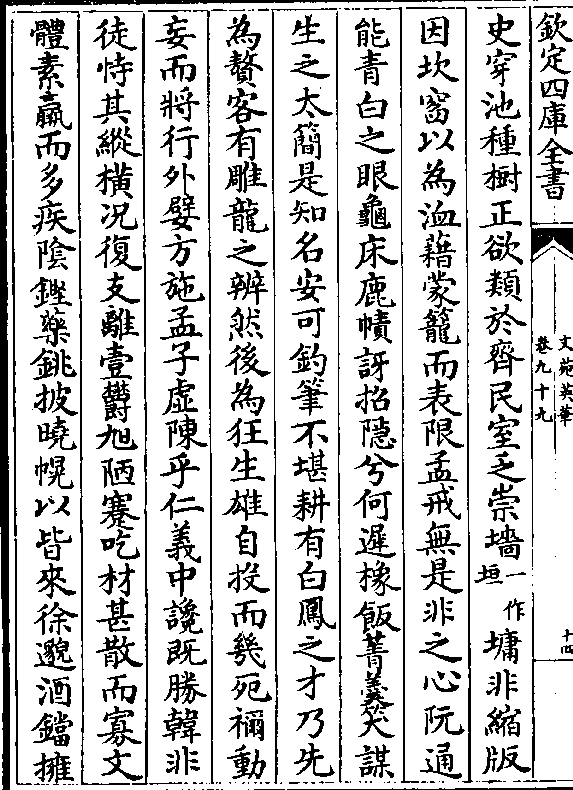 欽定四庫全書
文苑英華
卷九十九
十四
史穿池種樹正欲類於齊民室乏崇墻一作垣墉非縮版
因坎窞以為洫藉蒙籠而表限孟戒無是非之心阮通
能青白之眼龜床鹿幘訝招隐兮何遲橡飯菁羮笑謀
生之太簡是知名安可釣筆不堪耕有白鳳之才乃先
為贅客有雕龍之辨然後為狂生雄自投而幾死禰動
妄而將行外嬖方施孟子虛陳乎仁義中讒既勝韓非
徒恃其縱橫况復支離壹鬱旭陋蹇吃材甚散而寡文
體素羸而多疾陰鏗藥銚披曉幌以皆來徐邈酒鐺擁